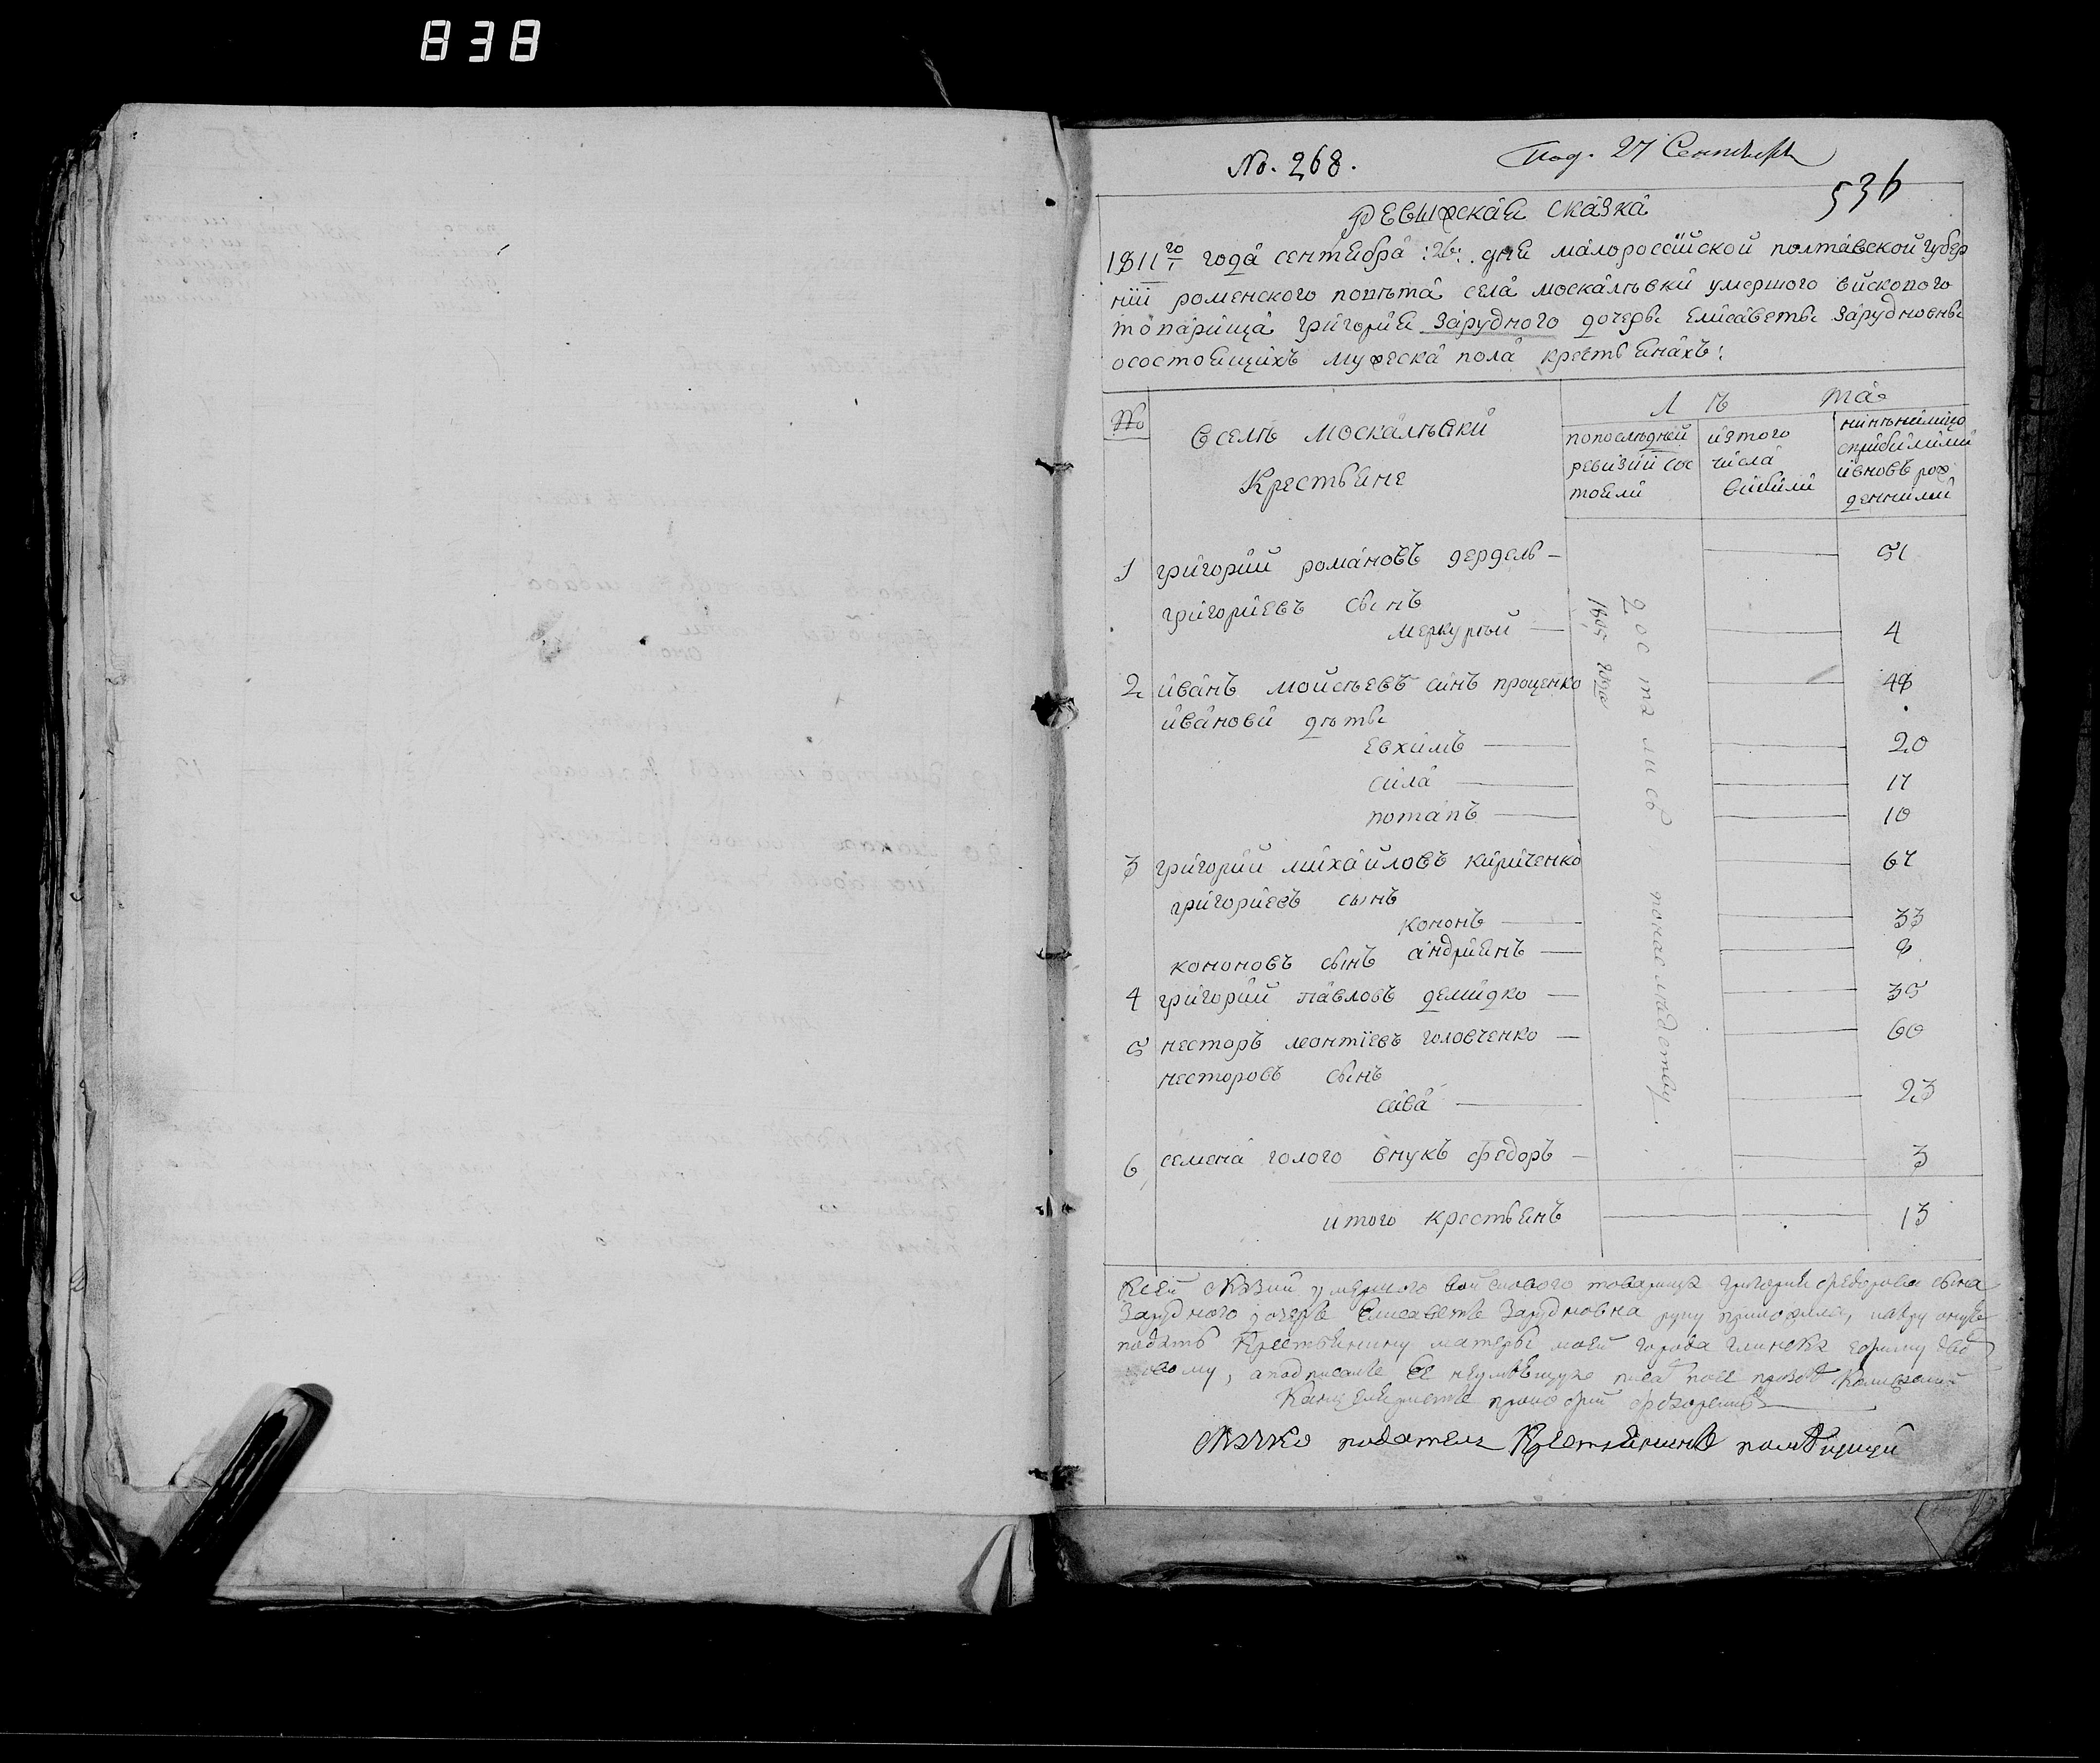 838
No. 268.
Под. 27 Сентября
536
Ревижская сказка
1811го года сентября :26: дня малороссійской полтавской губер
ніи роменского повѣта села москалѣвки умершого війскового
товарища григорія зарудного дочеры елисаветы зарудновны
осостоящихъ мужеска пола крестьянахъ:
№
вселѣ москалѣвки
Крестьяне
Лѣта
попослѣдней
ревизии сос
тояли
изтого
числа
вибили
нинѣ налицо
сприбилими
ивновъ рож
денними
1 григорий романовъ дердель — 51
григориевъ сынъ
меркурый — 4
2 иванъ мойсѣевъ синъ проценко 48
иванови дѣты
евхимъ — 20
сила — 17
потапъ — 10
3 григорий михайловъ кириченко 67
григориевъ сынъ
кононъ — 33
кононовъ сынъ андриянъ — 8
4 григорий павловъ демидко — 35
5 несторъ леонтіевъ головченко — 60
несторовъ сынъ
сава — 23
6 семена голого внукъ федоръ — 3
1805 года
достались понаслѣдству.
итого крестьянъ 13
Ксей скзки умершого войскового товарища григория федорова сына
Зарудного дочерь Елисаветы Зарудновна руку приложила,
подать Крестьянину матеры моей города глинска
Канцеляриста
скзку податель Крестьянинъ помѣщици